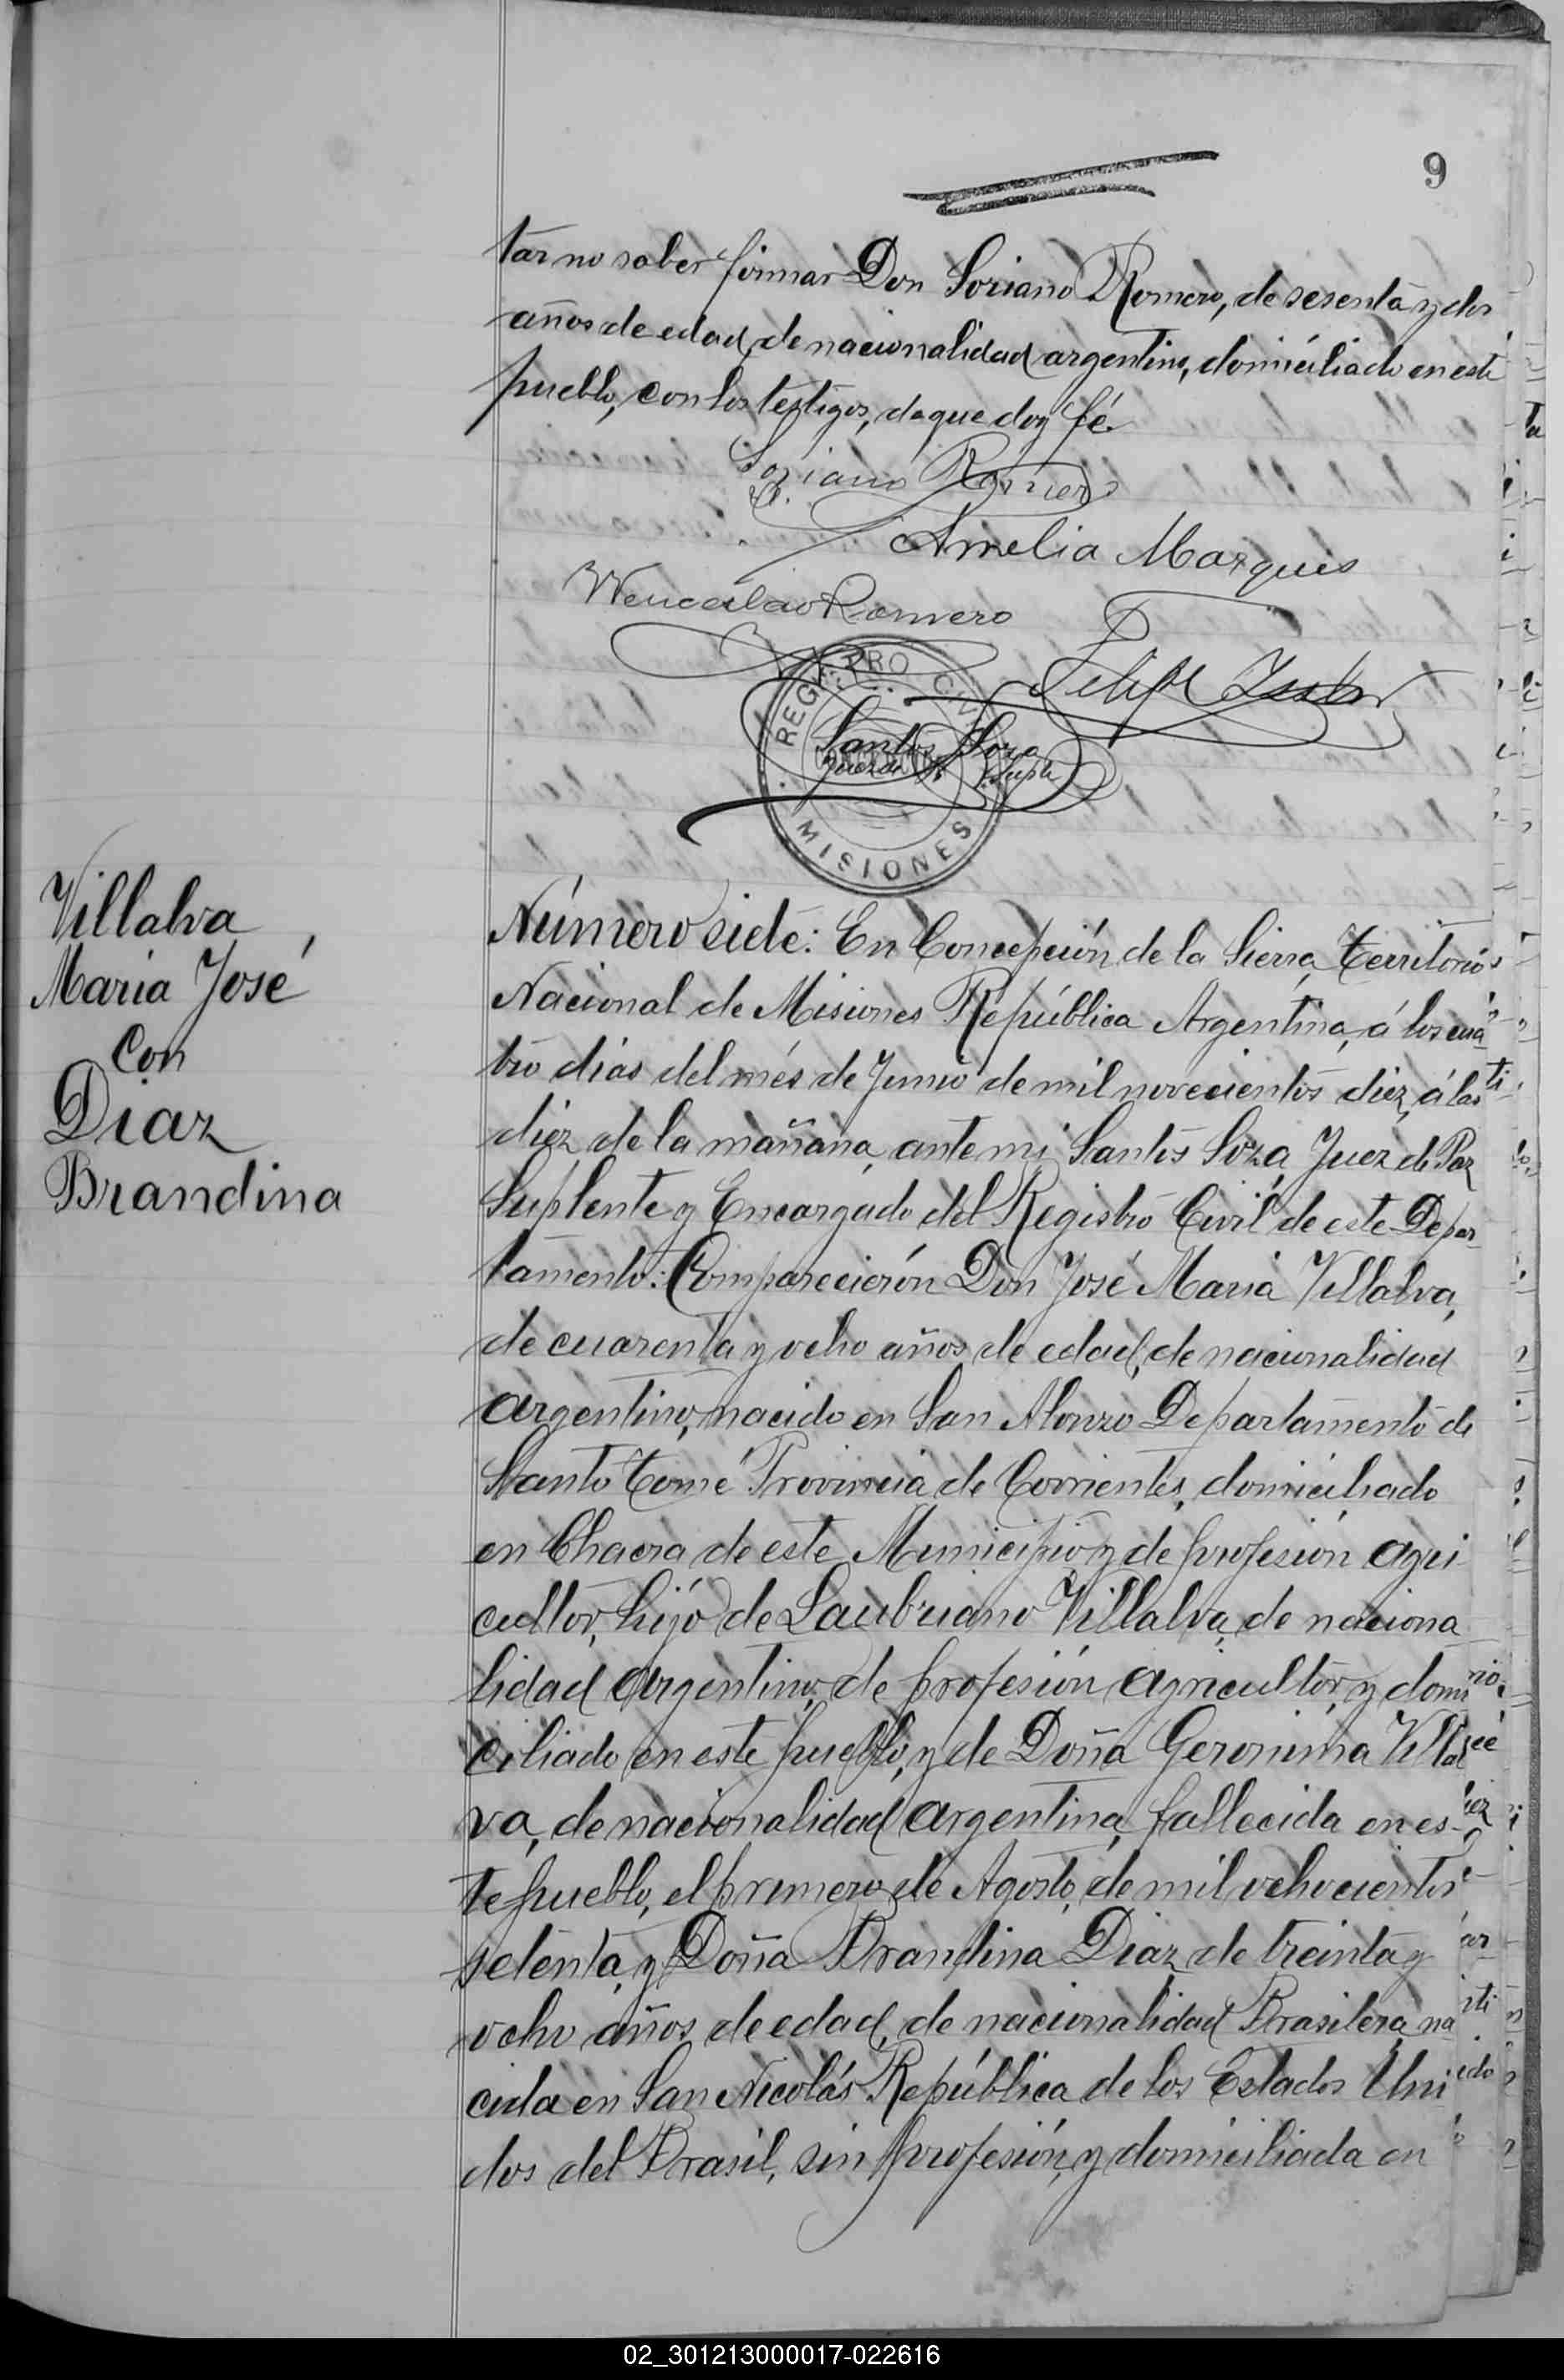 9
tar no saber firmar Don Soriano Romero, de sesenta y dos
años de edad, de nacionalidad argentino, domiciliado en este
pueblo, con los testigos, de que doy fé.
Soriano Romero
Amelia Marques
Wenceslao Romero
Felipe
REGISTRO CIVIL
Santos Soza
Juez de Paz Suplte
MISIONES
Villalva
Maria José
Con
Diaz
Brandina
Número siete: En Concepción de la Sierra, Territorio
Nacional de Misiones República Argentina, á los cua
tro dias del més de Junio de mil novecientos diez, á las
diez de la mañana, ante mi Santos Soza, Juez de Paz
Suplente y Encargado del Registro Civil de este Depar
tamento: Comparecierón Don José Maria Villalva,
de cuarenta y ocho años de edad, de nacionalidad
argentino, nacido en San Alonzo Departamento de
Santo Tomé Provincia de Corrientes, domiciliado
en Chacra de este Municipio y de profesión agri
cultor, hijo de Laubriano Villalva, de naciona
lidad argentino, de profesión agricultor, y domi
ciliado en este pueblo, y de Doña Geronima Villal
va, de nacionalidad argentina, fallecida en es-
te pueblo, el primero de Agosto, de mil ochocientos
setenta, y Doña Brandina Diaz, de treinta y
ocho años de edad, de nacionalidad Brasilera, na
cida en San Nicolás República de los Estados Uni
dos del Brasil, sin profesión, y domiciliada en
02_301213000017-022616